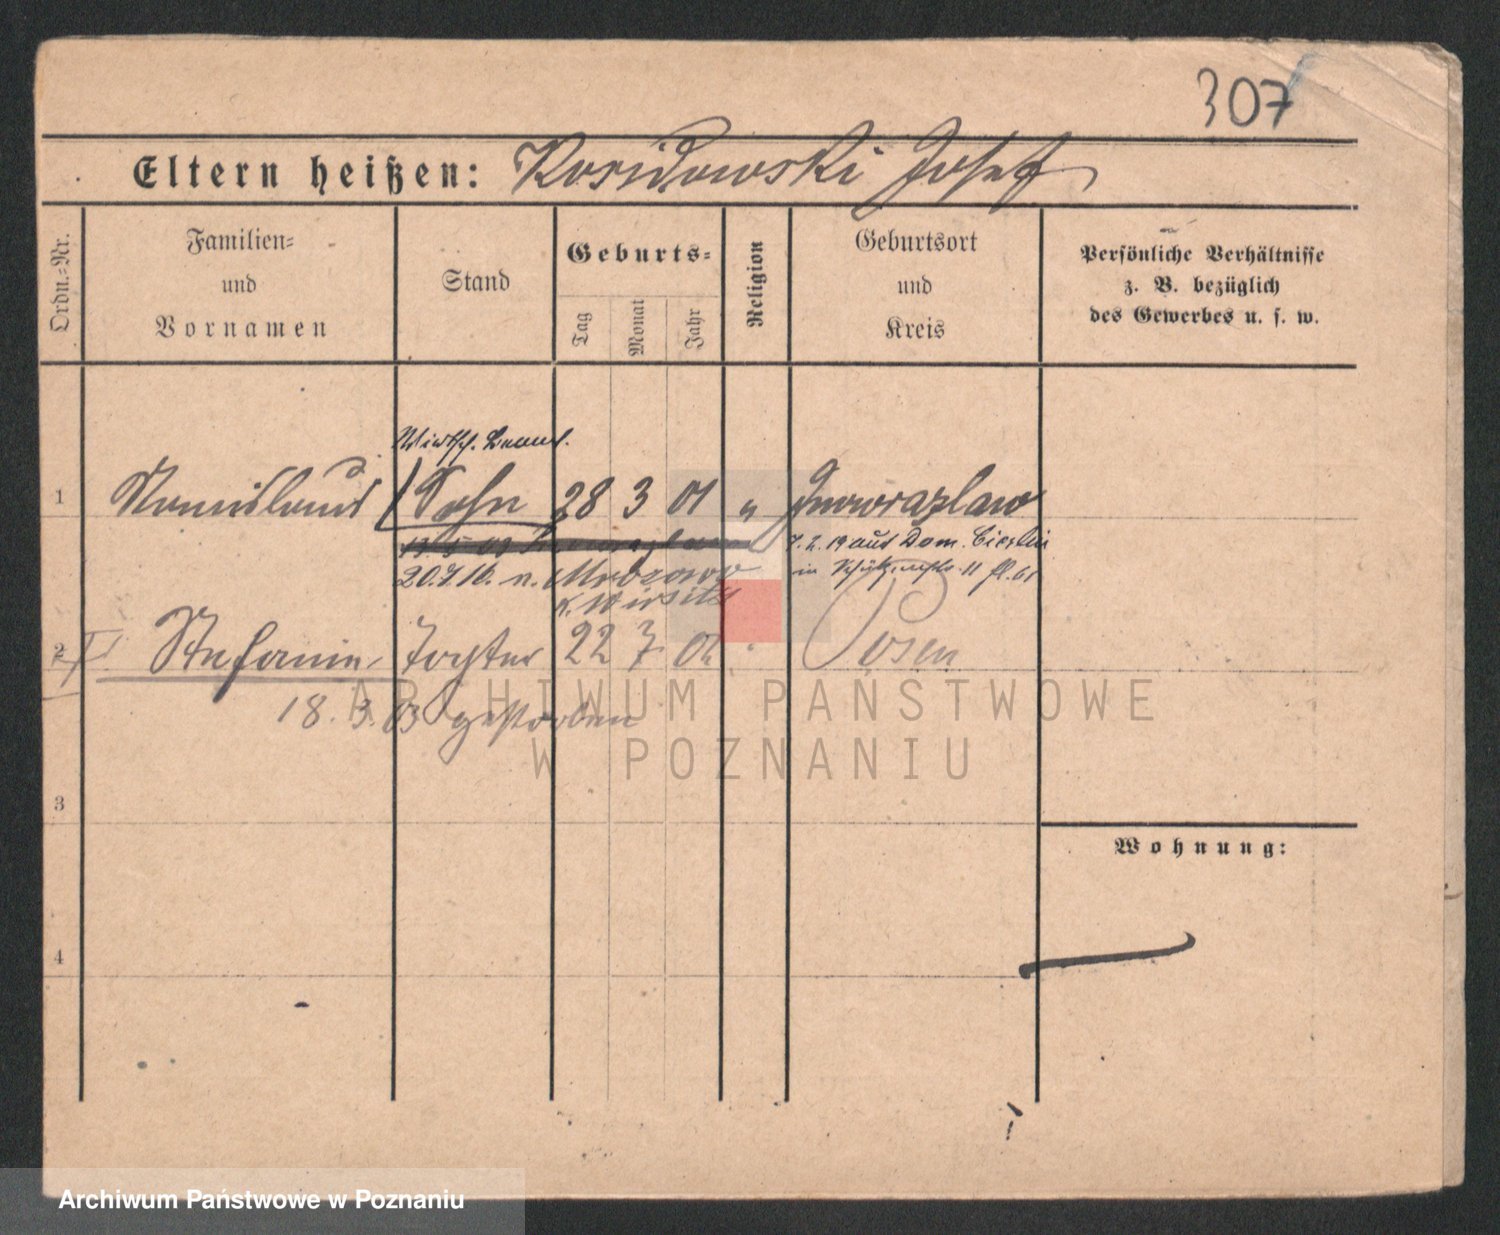 307
Eltern heißen: Kosidowski Josef
Ordn.-Nr.
Familien-
und
Vornamen
Stand
Geburts-
Tag
Monat
Jahr
Religion
Geburtsort
und
Kreis
Persönliche Verhältnisse
z. B. bezüglich
des Gewerbes u. s. w.
Wirtsch. Beamt.
1 Stanislaus Sohn 28 3 01 " Inowrazlaw
7.2.19 aus Dom.
20.7.16. n. Mrozowo
in Schützenstr. 11
K. Wirsitz
2 Stefanie Tochter 22 7 02 " Posen
18.3.03 gestorben
ARCHIWUM PAŃSTWOWE
W POZNANIU
3
Wohnung:
4
Archiwum Państwowe w Poznaniu